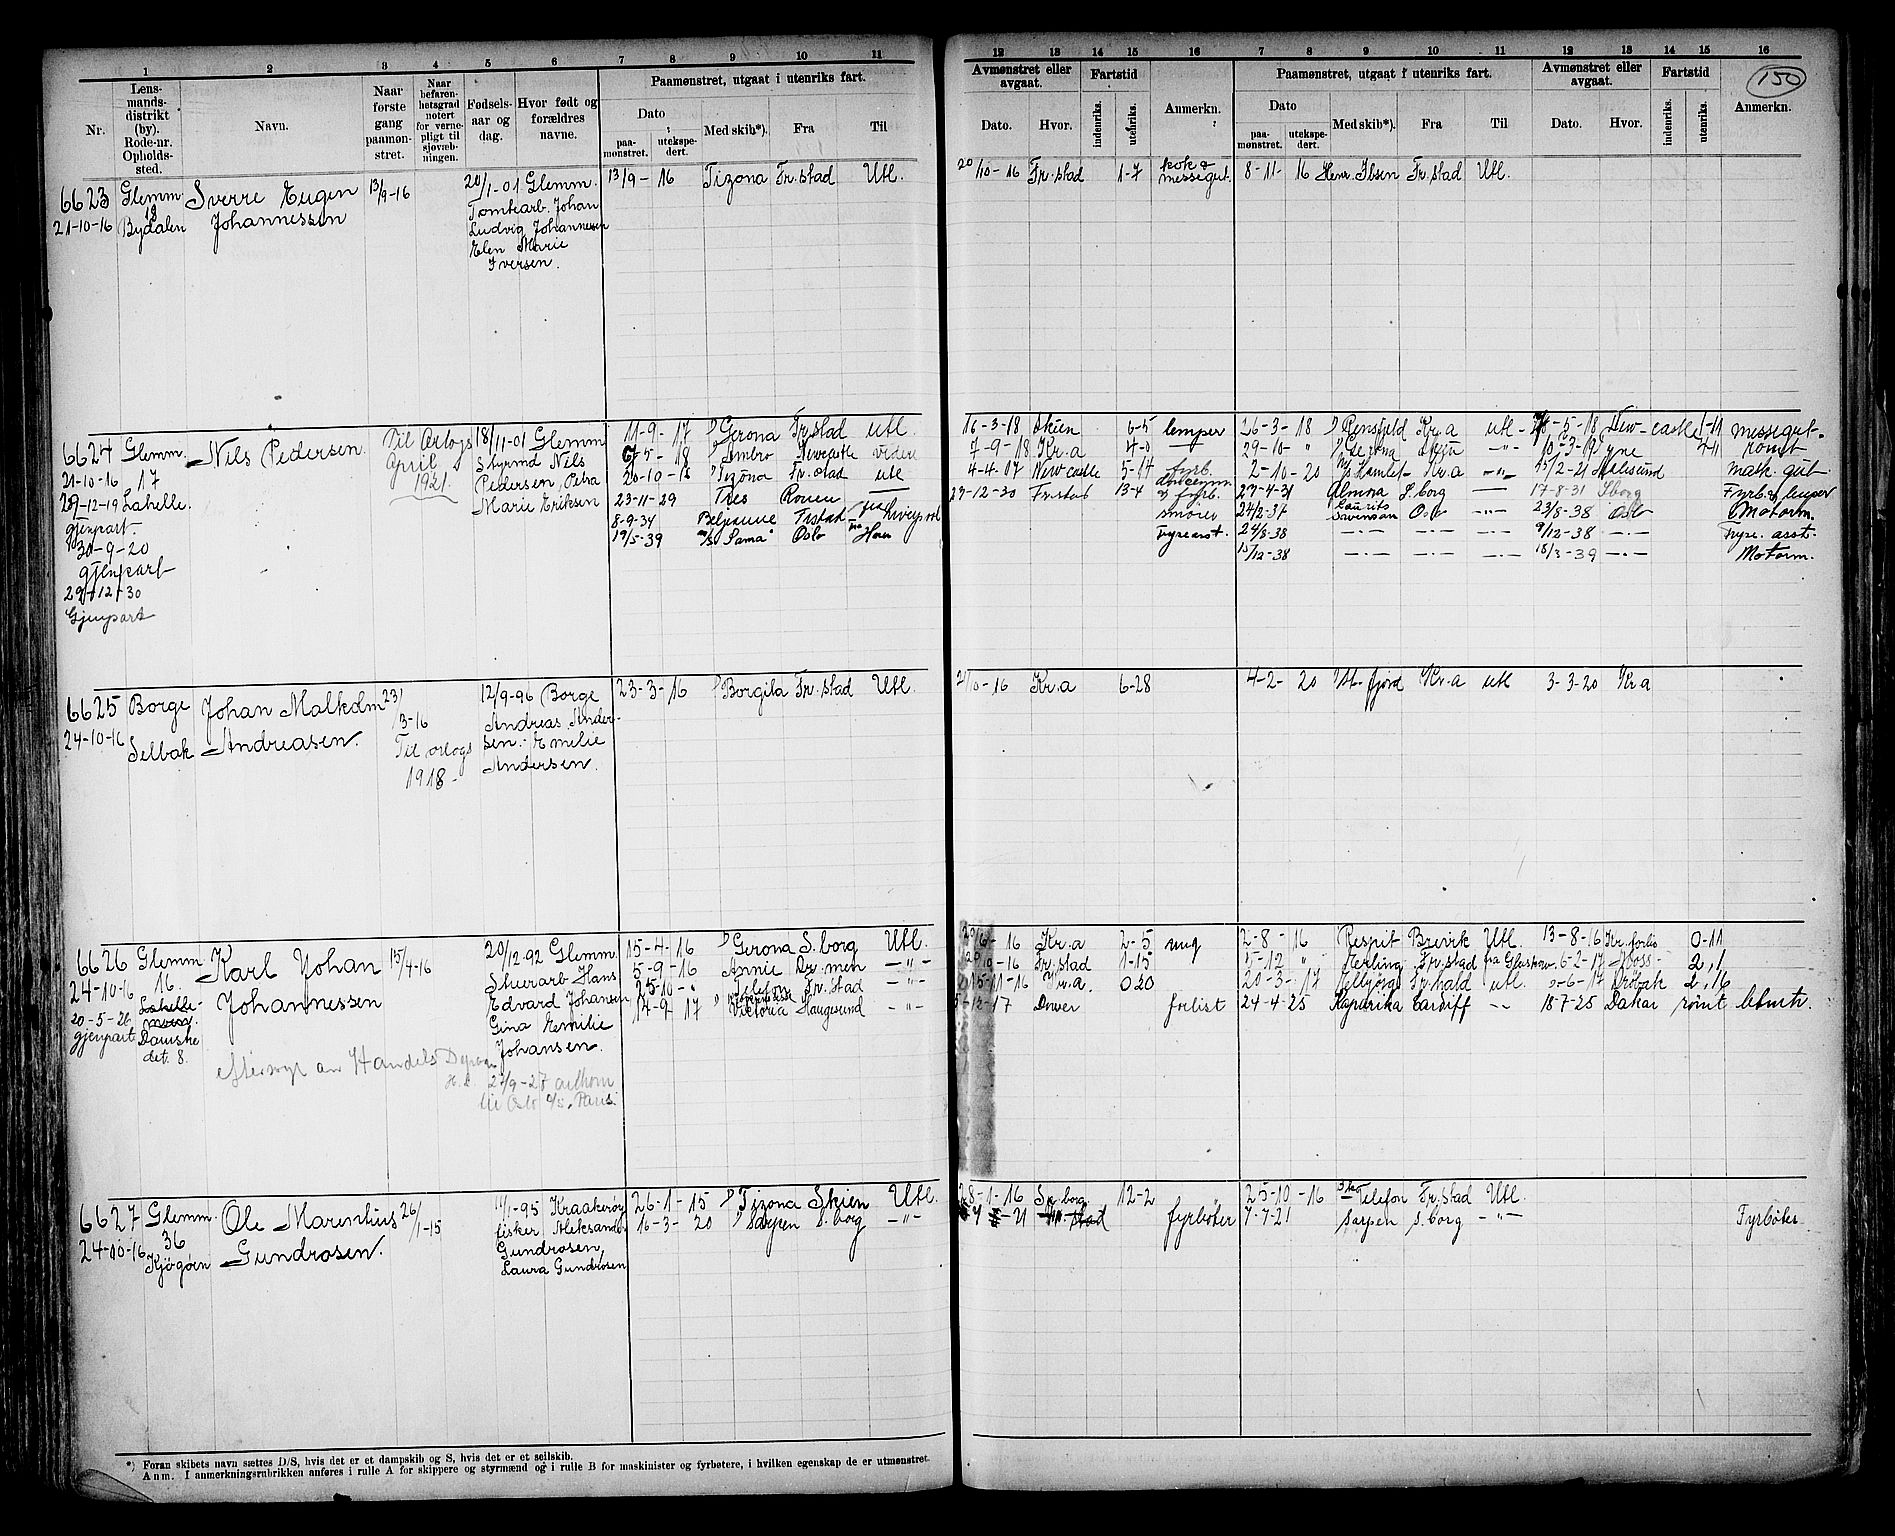 1 2 3 4 5 6 7 8 9 10 11
Nr.
Lens-
mands-
distrikt
(by).
Rode-nr.
Opholds-
sted.
Navn.
Naar
første
gang
paamøn-
stret.
Naar
befaren-
hetsgrad
notert
for verne-
pligt til
sjøvæb-
ningen.
Fødsels-
aar og
dag.
Hvor født og
forældres
navne.
Paamønstret, utgaat i utenriks fart.
Dato
paa-
mønstret.
utekspe-
dert.
Med skib*).
Fra
Til
12 13 14 15 16 7 8 9 10 11 12 13 14 15 16
Avmønstret eller
avgaat.
Dato.
Hvor.
Fartstid
indenriks.
utenriks.
Anmerkn.
Paamønstret, utgaat i utenriks fart.
Dato
paa-
mønstret.
utekspe-
dert.
Med skib*).
Fra
Til
Avmønstret eller
avgaat.
Dato.
Hvor.
Fartstid
indenriks.
utenriks.
150
Anmerkn.
6623 Glemm Sverre Eugen 13/9-16 20/1-01 Glemm. 13/9-16 Tizona Fr.stad Utl.
18
21-10-16 Bydalen Johannessen Tomtearb. Johan
Ludvig Johannessen
Elen Marie
Iversen.
20/10-16 Fr.stad 1-7 kok &
messegut. 8-11-16 Henr. Ibsen Fr.stad Utl.
6624 Glemm. Nils Pedersen. Til Orlogs 18/11-01 Glemm 11-9-17 Gerona Fr.stad utl.
21-10-16 17 April Styrmd Nils 5-18 Ambro Newcastle videre
29-12-19 Lahelle. 1921. Pedersen, Petra 20-10-18 Tizona Fr.stad utl
gjenpart. Marie Eriksen 23-11-29 Tres Rouen
30-9-20 8-9-34 Beljeanne Frstad fra Liverpool
gjenpart 19/5-39 m/s "Sama" Oslo fra
29-12-30
Gjenpart
16-3-18 Skien 6-5 lemper 26-3-18 Rensfjeld Kr.a utl 5-18 New-castle 1-11 messegut.
7-9-18 Kr.a 4-0 29-10-" Gerona Skien -"- 10-3-19 Tyne 4-11 rømt
4-4-07 Newcastle 5-14 fyrb. 2-10-20 Hamlet Kr.a -"- 15/2-21 mask. gut
29-12-30 Frstad 13-4 & fyrb. 29-4-31 Almora S.borg 17-8-31 Sborg Fyrb. & lemper
smører 24/2-37 Laurits
Swenson Oslo -"- 23/8-38 Oslo Motorm.
Fryseasst. 24/8-38 -"- -"- -"- 9/12-38 -"- Fryse. asst.
15/12-38 -"- -"- -"- 18/3-39 -"- Motorm.
6625 Borge Johan Malkolm 23/ 12/9-96 Borge 23-3-16 Borgila Fr.stad Utl.
24-10-16 Selbak Andreasen. 3-16 Andreas Ander-
Til orlogs sen. Emilie
1918- Andersen.
2/10-16 Kr.a 6-28 4-2-20 Kr.a utl 3-3-20 Kr.a
6626 Glemm. Karl Johan 15/4-16 20/12-92 Glemm. 15-4-16 Gerona S.borg Utl.
24-10-16 16. Johannessen Skurarb Hans 5-9-16 Annie Dr.men -"-
Lahelle- Edvard Johansen 25-10-" Telefon Fr.stad -"-
20-5-26 Gina Emilie 14-9-17 Victoria Haugesund -"-
gjenpart Danske Johansen.
det. 8.
27/9-27
Oslo Paris
16 Kr.a 2-5 2-8-16 Respit Brevik Utl. 13-8-16 Kr. forlis 0-11
10-16 Fr.stad 1-15 5-12 " Herling Fr.stad fra Glaskow 6-2-17 Moss 2,1
11-16 Kr.a 0 20 20-3-17 Fr.hald utl. 6-17 Drøbak 2,16
12-17 Dover forlist 24-4-25 Kaprika Cardiff -"- 18-7-25 Dakar rømt
6627 Glemm. Ole Marentius 26/1-15 11/1-95 Kraakerøy 26-1-15 Tizona Skien Utl.
36 fisker Aleksander 16-3-20 Sarpen S.borg -"-
24-10-16 Kjøgøen Gundrosen. Gundrosen,
Laura Gundrosen
28-1-16 S.borg 12-2 25-10-16 Telefon Fr.stad Utl.
21 Fr.stad fyrbøter 7-7-21 Sarpen S.borg -"- Fyrbøter
*) Foran skibets navn sættes D/S, hvis det er et dampskib og S, hvis det er et seilskib.
Anm. I anmerkningsrubrikken anføres i rulle A for skippere og styrmænd og i rulle B for maskinister og fyrbøtere, i hvilken egenskap de er utmønstret.